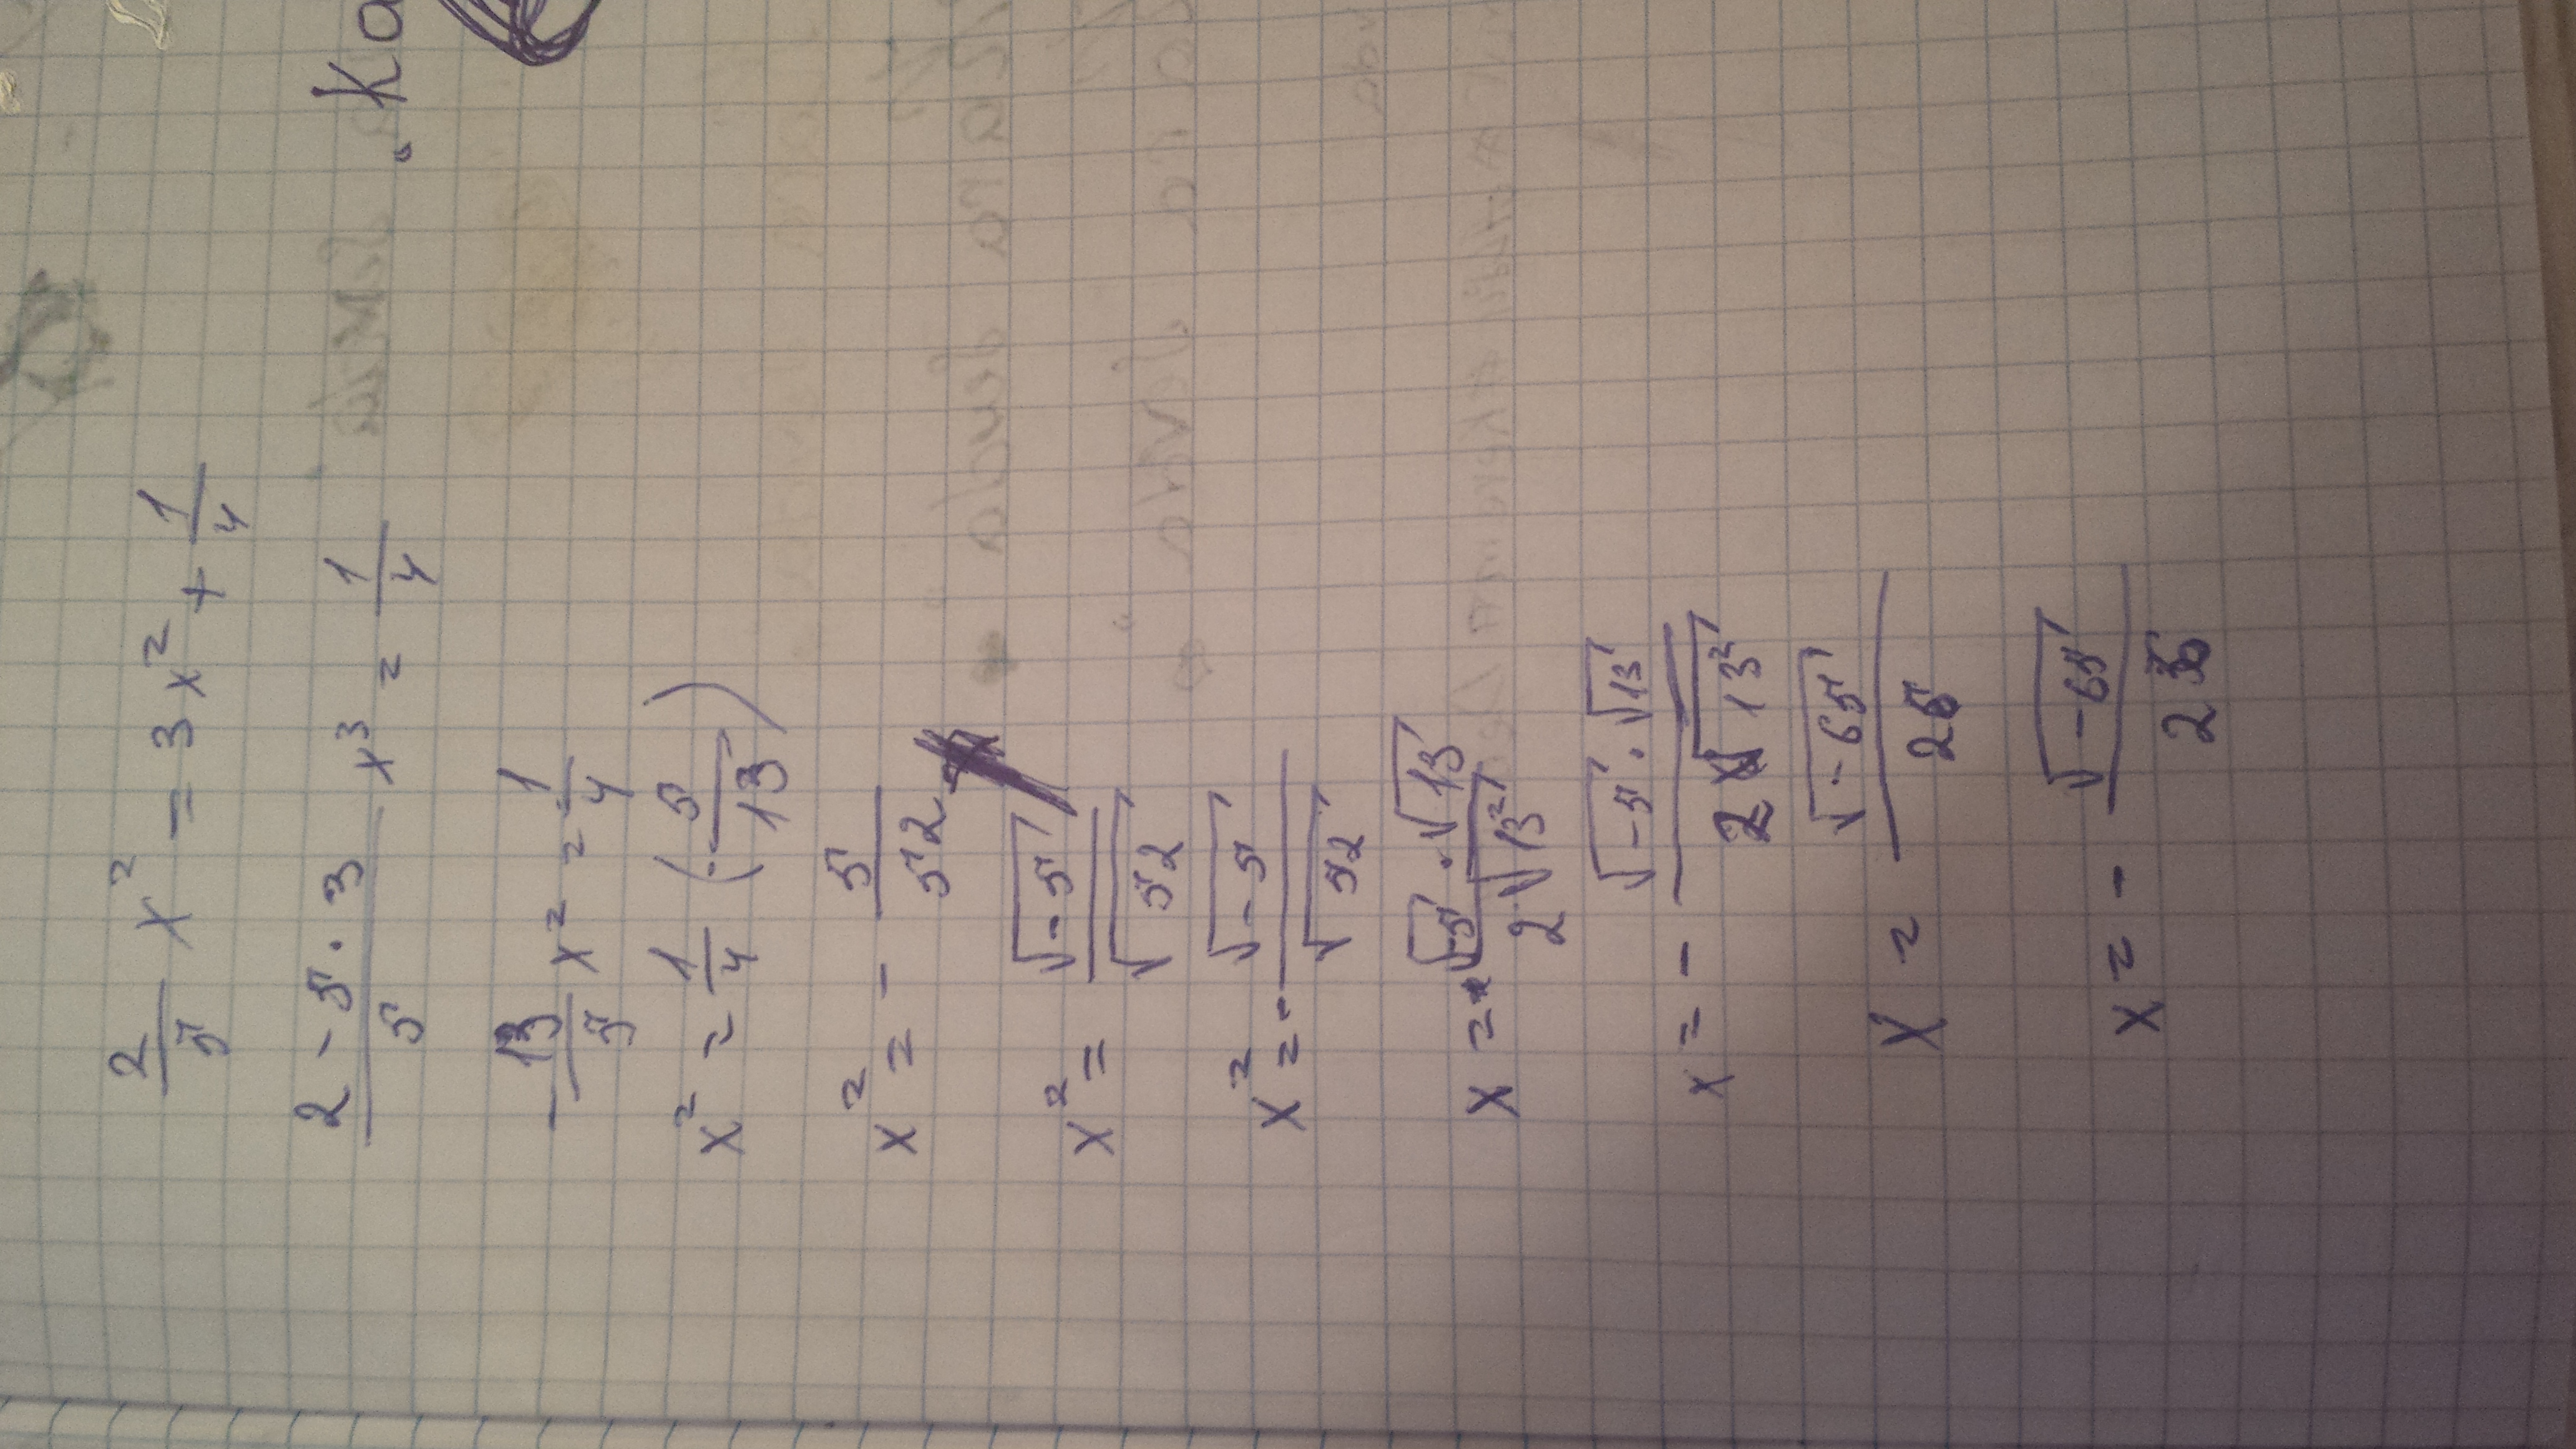 2/5 x² = 3x² + 1/4
„Ка
2 - 5 · 3 / 5 x³ = 1/4
- 13/5 x² = 1/4
x² = 1/4 · (- 5/13)
x² = - 5/52
x² = √-5 / √52
x² = - √-5 / √52
x = √-5 · √13 / 2√13²
x = - √-5 · √13 / 2√13²
x = √-65 / 26
x = - √-65 / 26